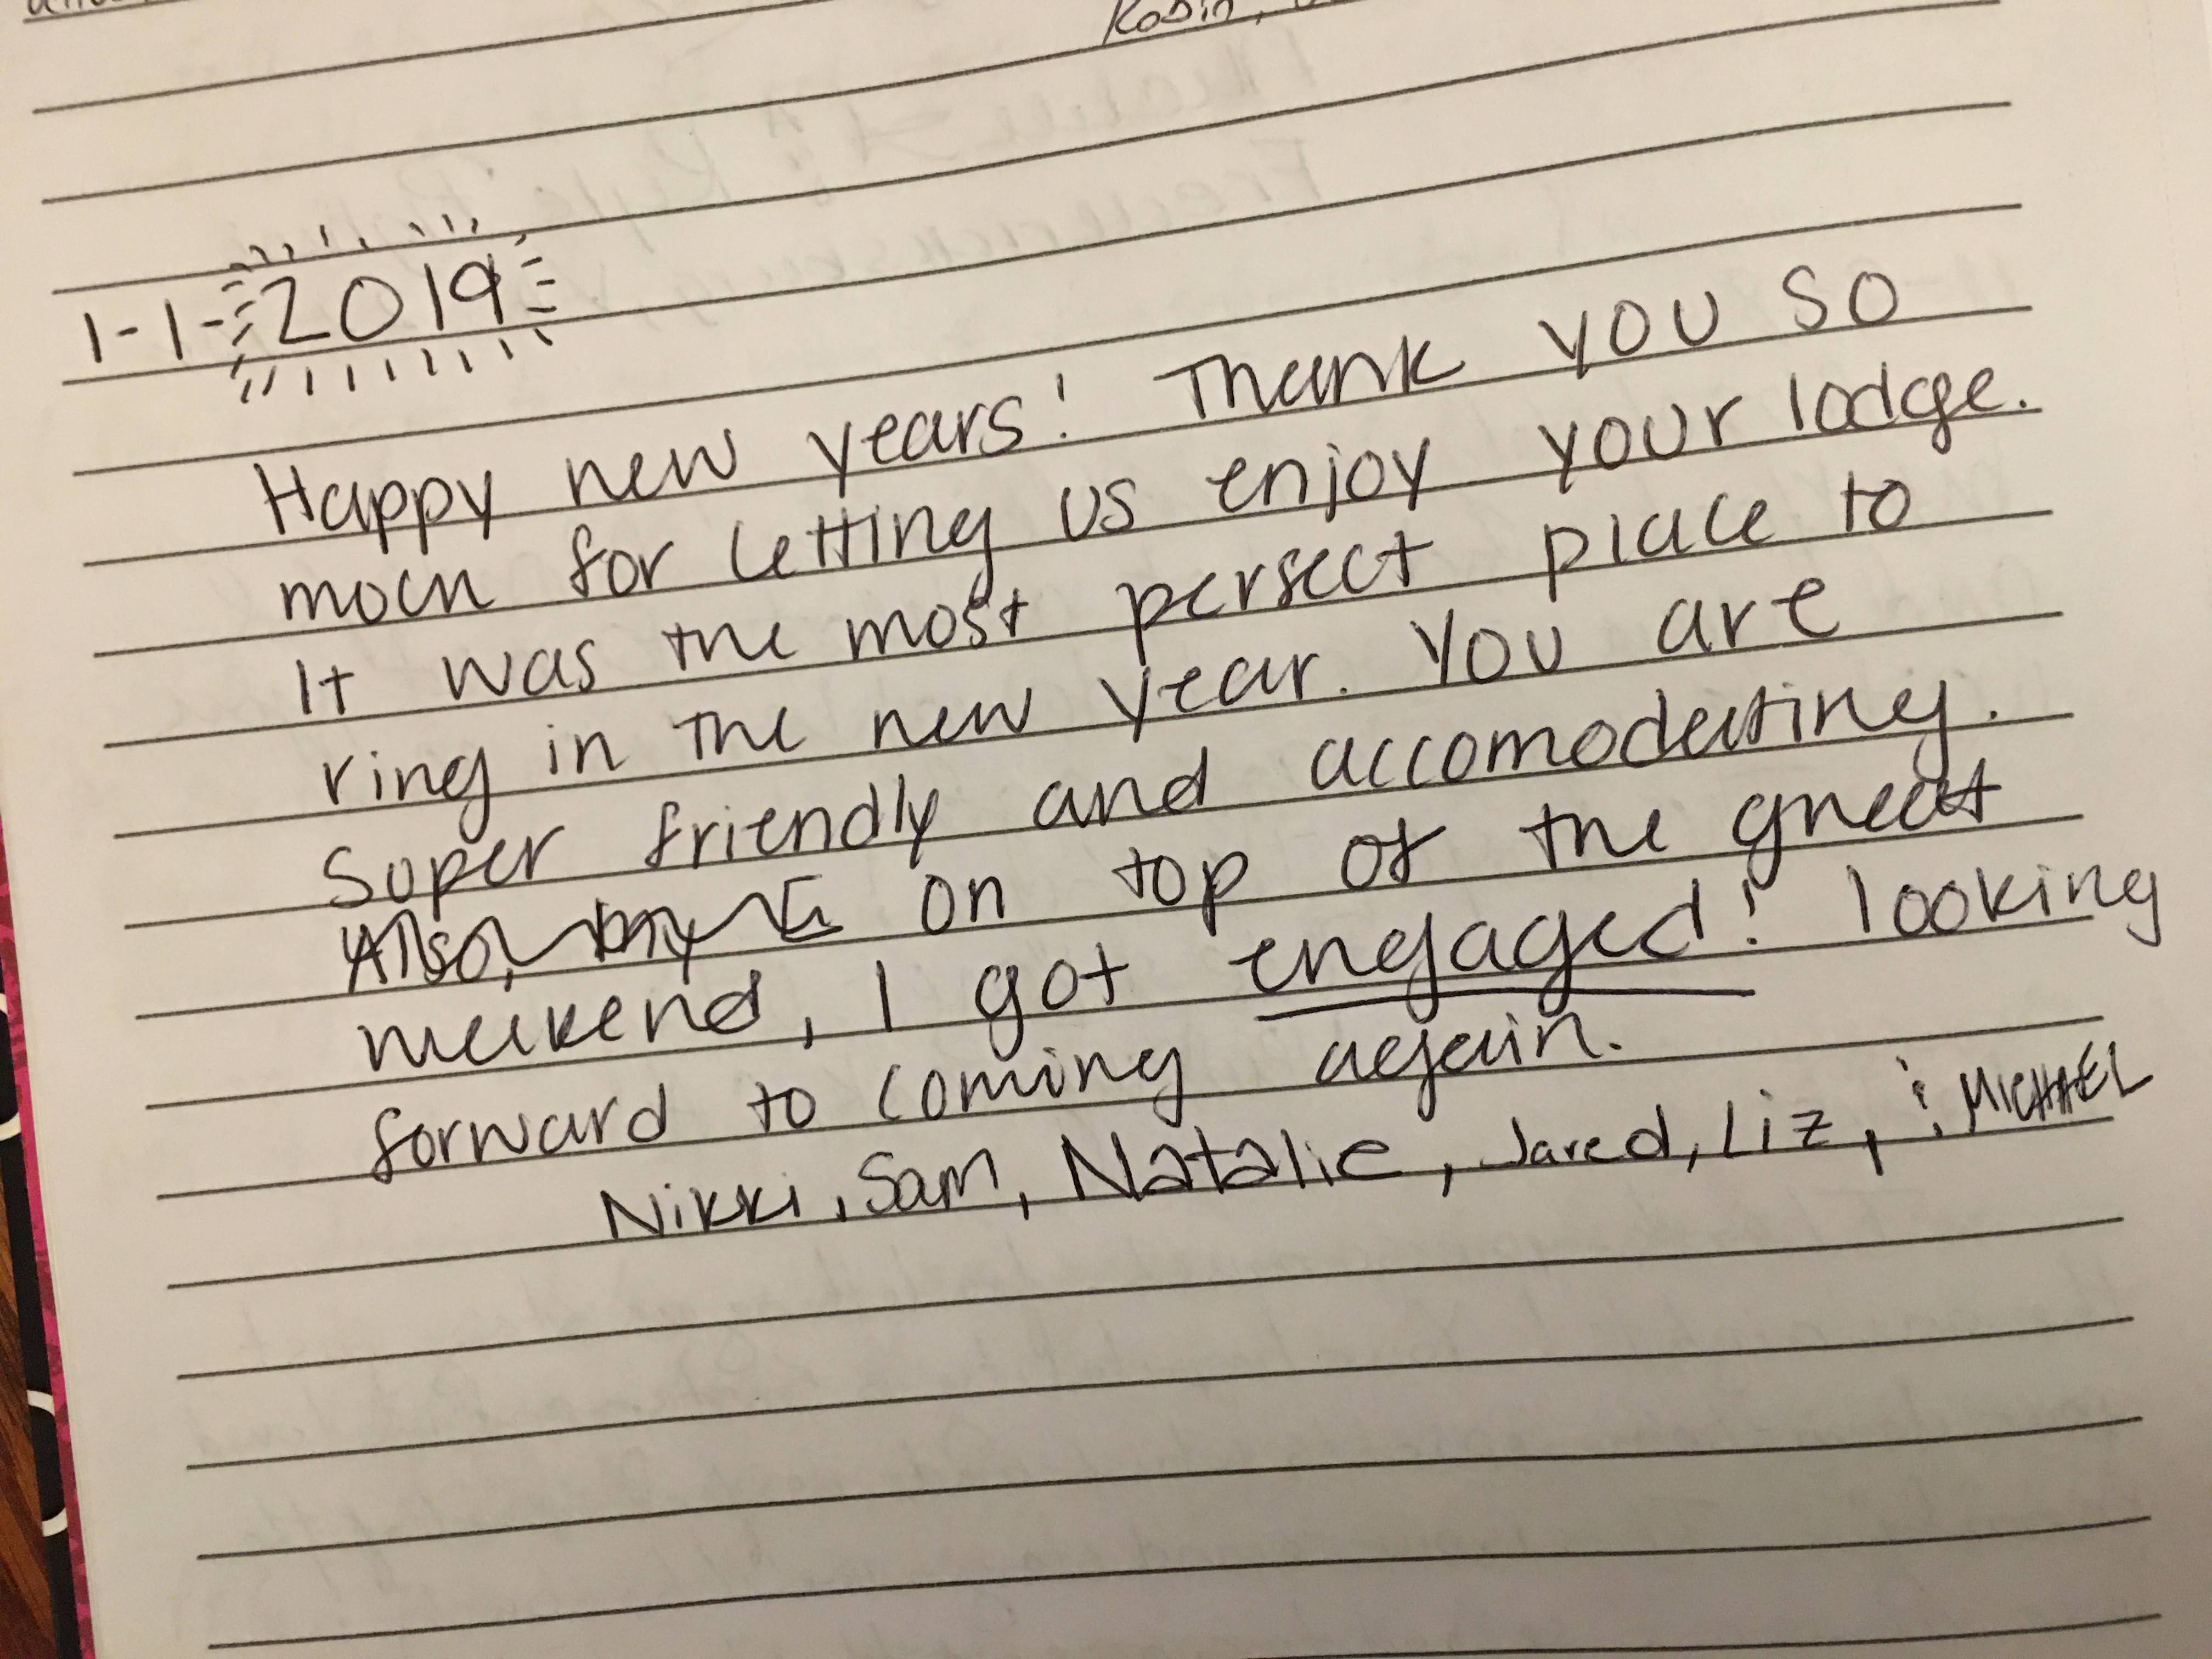 Robin,
1-1-2019
Happy new years! Thank you so
much for letting us enjoy your lodge.
It was the most perfect place to
ring in the new year. You are
super friendly and accomodating.
Also, my on top of the great
weekend, I got engaged! looking
forward to coming again.
Nikki, Sam, Natalie, Jared, Liz, & MICHAEL